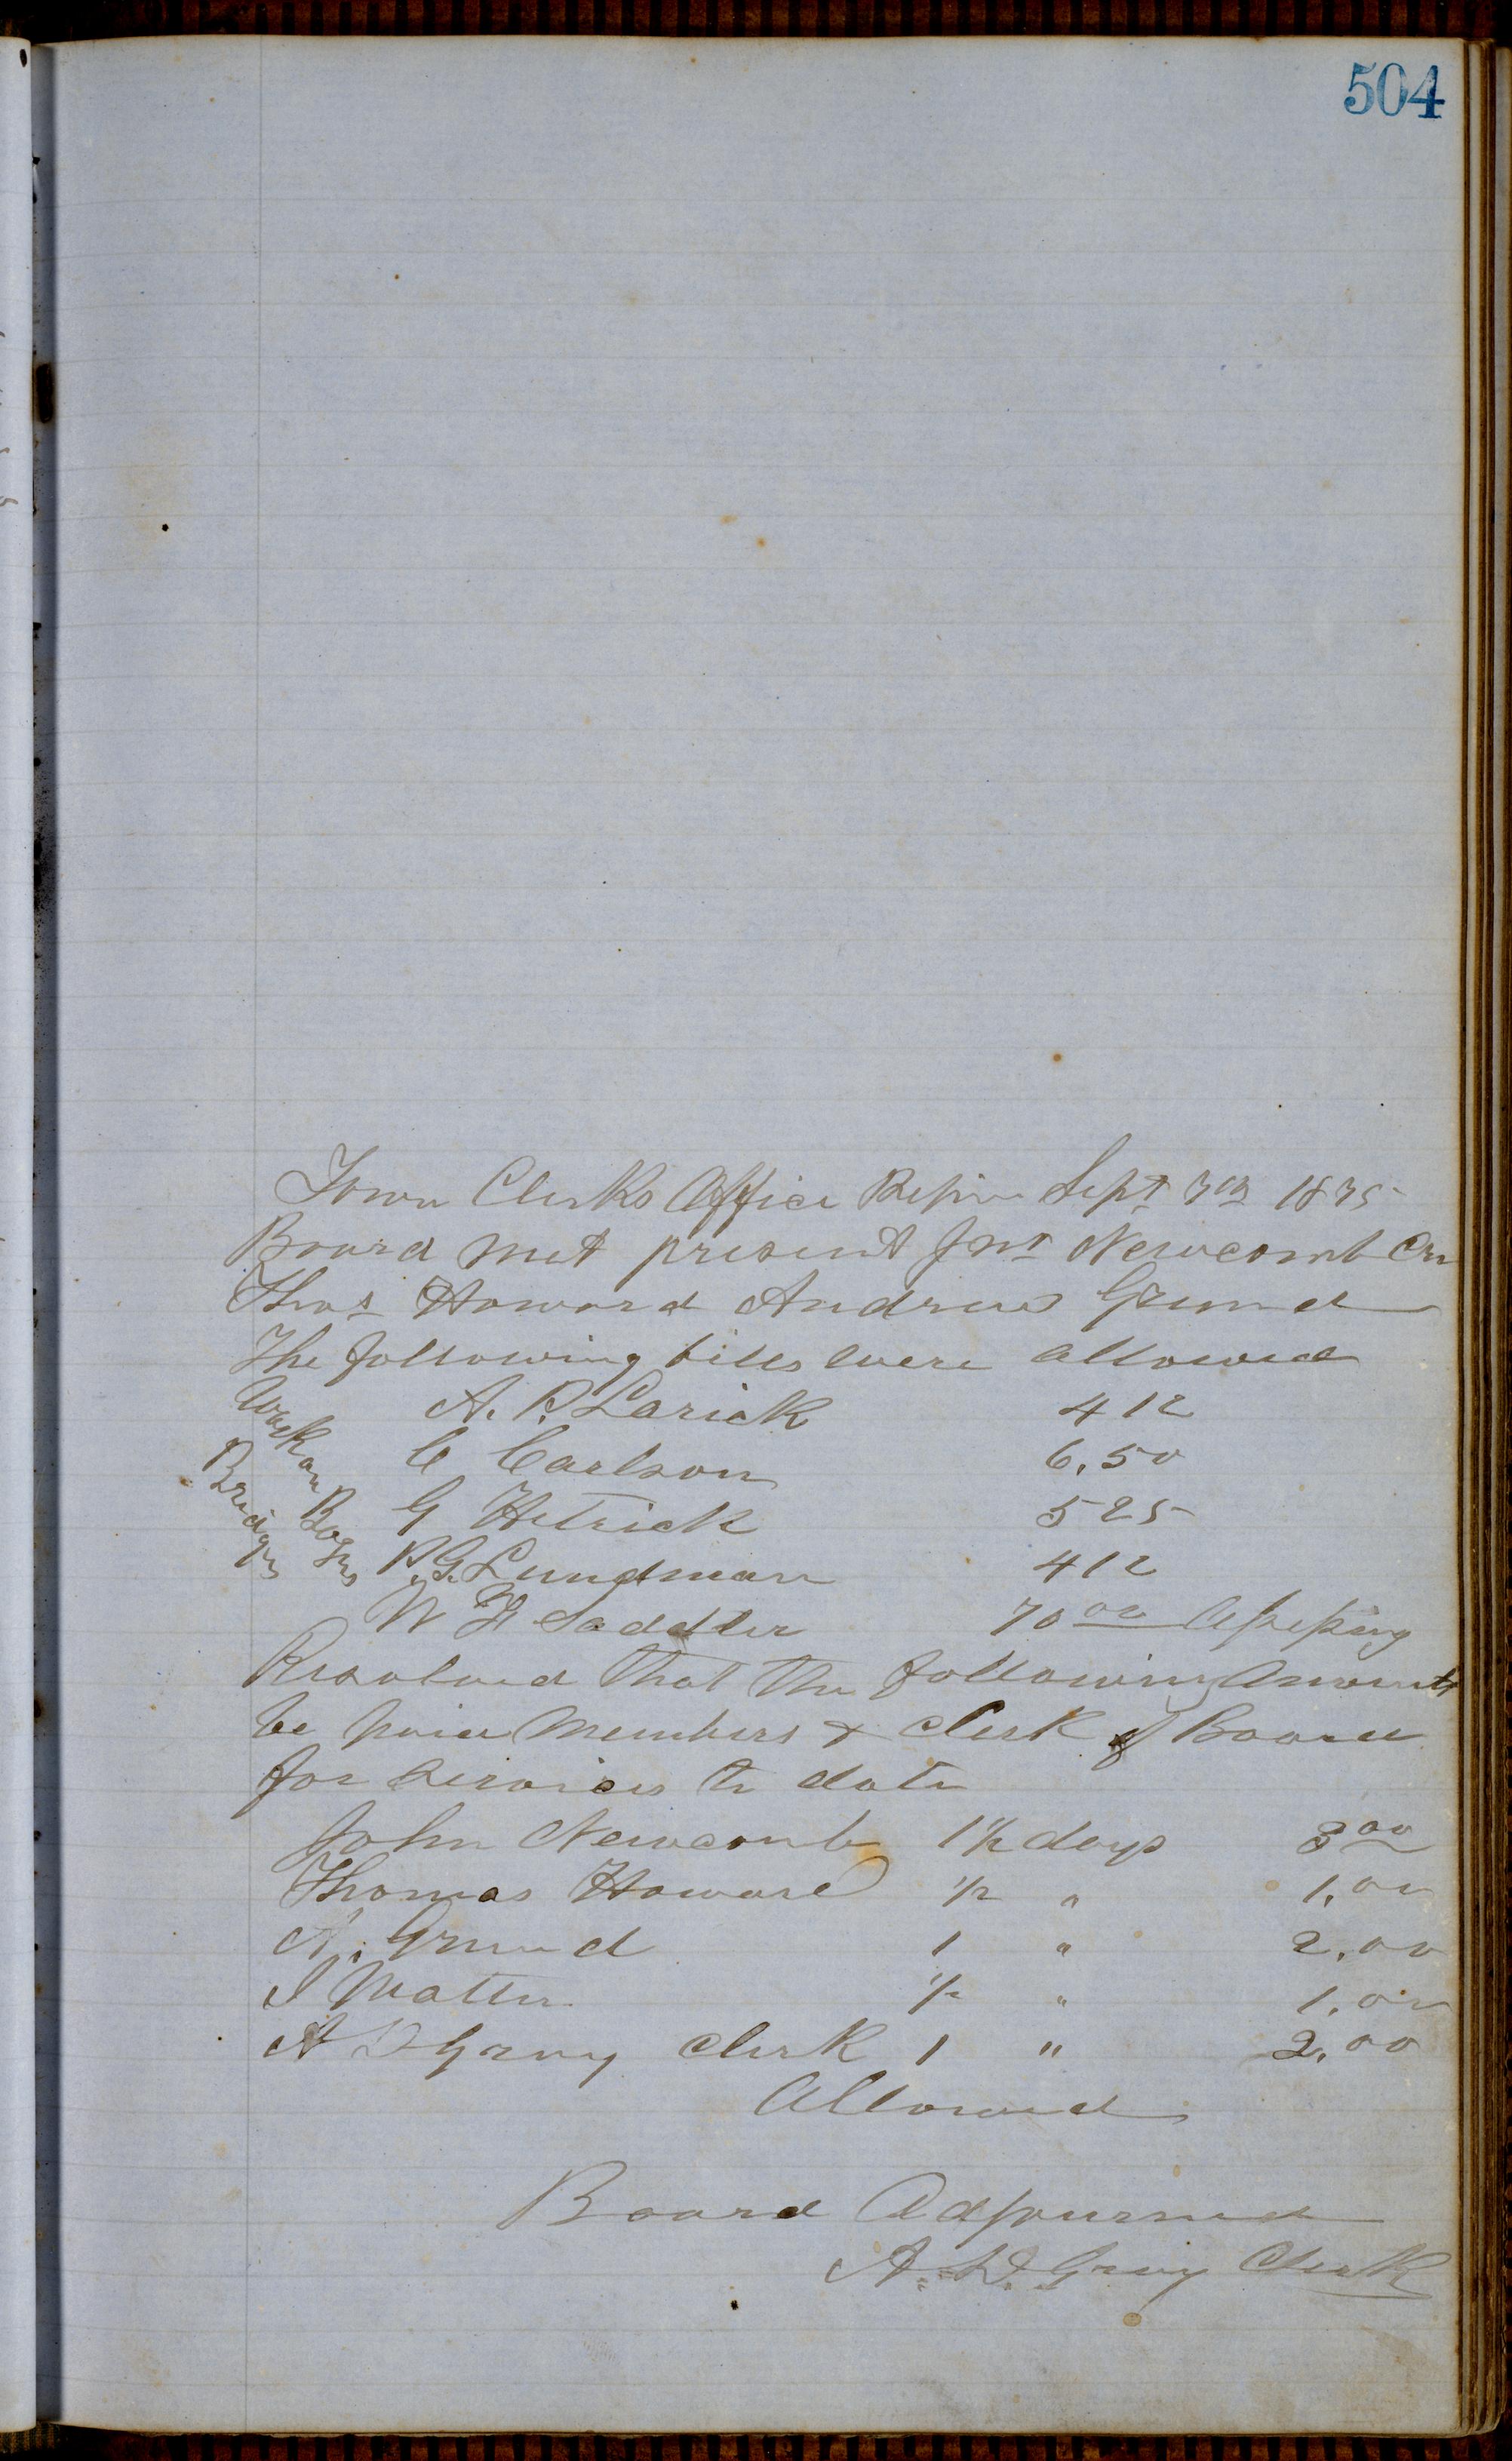 504
Town Clerks Office Pepin Sept 7th 1875
Board met present Jno Newcomb Crn
Thos Howard Andrew Grund
The following bills were allowed
Work on Bridges
A. P. Larick 412
C Carlson 6.50
G Hetrick 525
P. G. Lundman 412
W H Saddler 70 00
Resolved that the following amounts
be paid members & clerk of Board
for services to date
John Newcomb 1 1/2 days 3 00
Thomas Howard 1/2 " 1.00
A. Grund 1 " 2.00
I Matter 1/2 " 1.00
A D Gray Clerk 1 " 2.00
Allowed
Board Adjourned
A. D. Gray Clerk